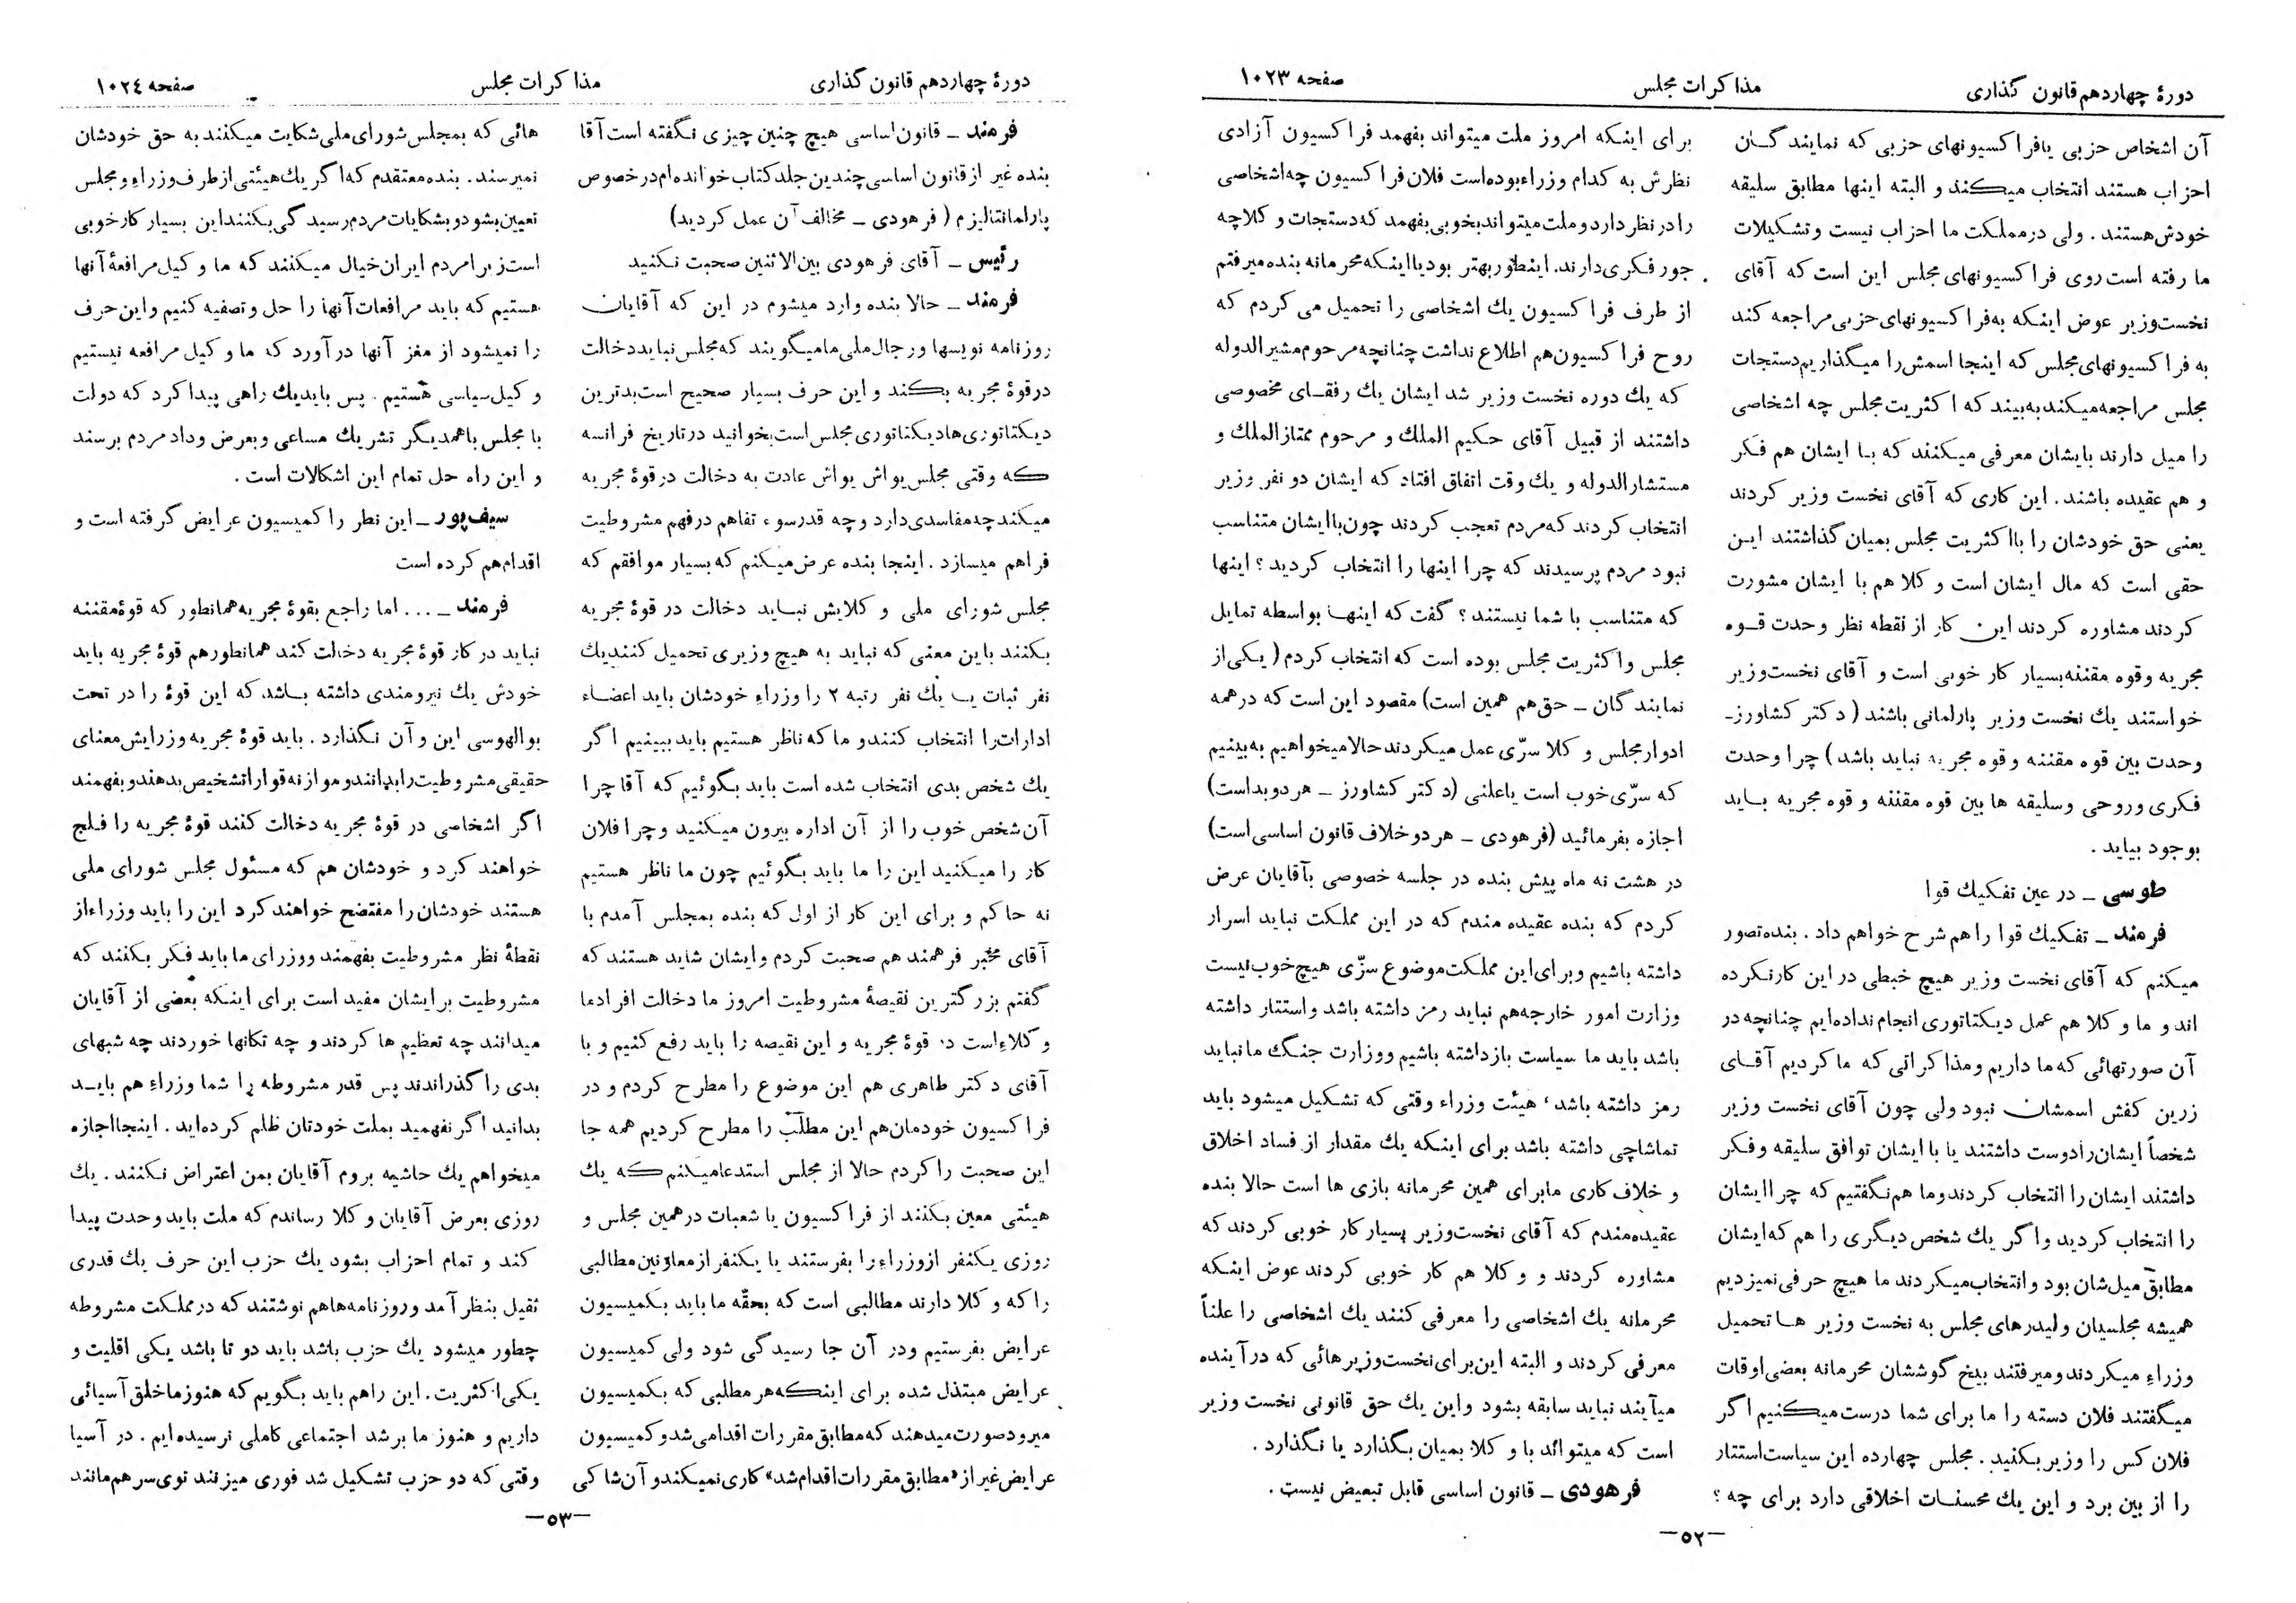 دورهٔ چهاردهم قانون گذاری
مذاکرات مجلس
صفحه ۱۰۲۳
آن اشخاص حزبی یا فراکسیونهای حزبی که نمایندگان
احزاب هستند انتخاب میکنند و البته اینها مطابق سلیقه
خودش هستند . ولی در مملکت ما احزاب نیست و تشکیلات
ما رفته است روی فراکسیونهای مجلس این است که آقای
نخست‌وزیر عوض اینکه به فراکسیونهای حزبی مراجعه کند
به فراکسیونهای مجلس که اینجا اسمش را میگذاریم دستجات
مجلس مراجعه میکند به بیند که اکثریت مجلس چه اشخاصی
را میل دارند بایشان معرفی میکنند که با ایشان هم فکر
و هم عقیده باشند . این کاری که آقای نخست وزیر کردند
یعنی حق خودشان را با اکثریت مجلس بمیان گذاشتند این
حقی است که مال ایشان است و کلا هم با ایشان مشورت
کردند مشاوره کردند این کار از نقطه نظر وحدت قوه
مجریه وقوه مقننه بسیار کار خوبی است و آقای نخست‌وزیر
خواستند یك نخست وزیر پارلمانی باشند ( دکتر کشاورز ـ
وحدت بین قوه مقننه و قوه مجریه نباید باشد ) چرا وحدت
فکری وروحی وسلیقه ها بین قوه مقننه و قوه مجریه باید
بوجود بیاید .
طوسی ـ در عین تفکیك قوا
فرمند ـ تفکیك قوا را هم شرح خواهم داد . بنده تصور
میکنم که آقای نخست وزیر هیچ خبطی در این کار نکرده
اند و ما و کلا هم عمل دیکتاتوری انجام نداده‌ایم چنانچه در
آن صورتهائی که ما داریم ومذاکراتی که ما کردیم آقای
زرین کفش اسمشان نبود ولی چون آقای نخست وزیر
شخصاً ایشان رادوست داشتند یا با ایشان توافق سلیقه وفکر
داشتند ایشان را انتخاب کردند وما هم نگفتیم که چرا ایشان
را انتخاب کردید واگر یك شخص دیگری را هم که ایشان
مطابق میل‌شان بود و انتخاب میکردند ما هیچ حرفی نمیزدیم
همیشه مجلسیان ولیدرهای مجلس به نخست وزیر ها تحمیل
وزراء میکردند ومیرفتند بیخ گوششان محرمانه بعضی اوقات
میگفتند فلان دسته را ما برای شما درست میکنیم اگر
فلان کس را وزیر بکنید . مجلس چهارده این سیاست استتار
را از بین برد و این یك محسنات اخلاقی دارد برای چه ؟
برای اینکه امروز ملت میتواند بفهمد فراکسیون آزادی
نظرش به کدام وزراء بوده‌است فلان فراکسیون چه اشخاصی
را در نظر دارد و ملت میتواند بخوبی بفهمد که دستجات و کلا چه
جور فکری دارند. اینطور بهتر بود یا اینکه محرمانه بنده میرفتم
از طرف فراکسیون یك اشخاصی را تحمیل می کردم که
روح فراکسیون هم اطلاع نداشت چنانچه مرحوم مشیرالدوله
که یك دوره نخست وزیر شد ایشان یك رفقای مخصوصی
داشتند از قبیل آقای حکیم الملك و مرحوم ممتازالملك و
مستشارالدوله و یك وقت اتفاق افتاد که ایشان دو نفر وزیر
انتخاب کردند که مردم تعجب کردند چون با ایشان متناسب
نبود مردم پرسیدند که چرا اینها را انتخاب کردید ؟ اینها
که متناسب با شما نیستند ؟ گفت که اینها بواسطه تمایل
مجلس و اکثریت مجلس بوده است که انتخاب کردم ( یکی از
نمایندگان ـ حق هم همین است) مقصود این است که در همه
ادوار مجلس و کلا سرّی عمل میکردند حالا میخواهیم به بینیم
که سرّی خوب است یا علنی (دکتر کشاورز ـ هر دو بداست)
اجازه بفرمائید (فرهودی ـ هر دو خلاف قانون اساسی است)
در هشت نه ماه پیش بنده در جلسه خصوصی بآقایان عرض
کردم که بنده عقیده مندم که در این مملکت نباید اسرار
داشته باشیم وبرای این مملکت موضوع سرّی هیچ خوب نیست
وزارت امور خارجه هم نباید رمز داشته باشد واستتار داشته
باشد باید ما سیاست باز داشته باشیم ووزارت جنگ ما نباید
رمز داشته باشد ، هیئت وزراء وقتی که تشکیل میشود باید
تماشاچی داشته باشد برای اینکه یك مقدار از فساد اخلاق
و خلاف کاری ما برای همین محرمانه بازی ها است حالا بنده
عقیده‌مندم که آقای نخست‌وزیر بسیار کار خوبی کردند که
مشاوره کردند و و کلا هم کار خوبی کردند عوض اینکه
محرمانه یك اشخاصی را معرفی کنند یك اشخاصی را علناً
معرفی کردند و البته این برای نخست‌وزیرهائی که در آینده
میآیند نباید سابقه بشود واین یك حق قانونی نخست وزیر
است که میتواند با و کلا بمیان بگذارد یا نگذارد .
فرهودی ـ قانون اساسی قابل تبعیض نیست .
ـ۵۲ـ
دورهٔ چهاردهم قانون گذاری
مذاکرات مجلس
صفحه ۱۰۲٤
فرمند ـ قانون اساسی هیچ چنین چیزی نگفته است آقا
بنده غیر از قانون اساسی چندین جلد کتاب خوانده‌ام در خصوص
پارلمانتالیزم ( فرهودی ـ مخالف آن عمل کردید)
رئیس ـ آقای فرهودی بین الاثنین صحبت نکنید
فرمند ـ حالا بنده وارد میشوم در این که آقایان
روزنامه نویسها ورجال ملی ما میگویند که مجلس نباید دخالت
در قوهٔ مجریه بکند و این حرف بسیار صحیح است بدترین
دیکتاتوری‌ها دیکتاتوری مجلس است بخوانید در تاریخ فرانسه
که وقتی مجلس یواش یواش عادت به دخالت در قوهٔ مجریه
میکند چه مفاسدی دارد و چه قدر سوء تفاهم در فهم مشروطیت
فراهم میسازد . اینجا بنده عرض میکنم که بسیار موافقم که
مجلس شورای ملی و کلایش نباید دخالت در قوهٔ مجریه
بکنند باین معنی که نباید به هیچ وزیری تحمیل کنند یك
نفر ثبات یا یك نفر رتبه ۲ را وزراء خودشان باید اعضاء
ادارات را انتخاب کنند و ما که ناظر هستیم باید ببینیم اگر
یك شخص بدی انتخاب شده است باید بگوئیم که آقا چرا
آن شخص خوب را از آن اداره بیرون میکنید و چرا فلان
کار را میکنید این را ما باید بگوئیم چون ما ناظر هستیم
نه حاکم و برای این کار از اول که بنده بمجلس آمدم با
آقای مخبر فرهمند هم صحبت کردم وایشان شاید هستند که
گفتم بزرگترین نقیصهٔ مشروطیت امروز ما دخالت افراد ما
و کلاء است در قوهٔ مجریه و این نقیصه را باید رفع کنیم و با
آقای دکتر طاهری هم این موضوع را مطرح کردم و در
فراکسیون خودمان هم این مطلب را مطرح کردیم همه جا
این صحبت را کردم حالا از مجلس استدعا میکنم که یك
هیئتی معین بکنند از فراکسیون یا شعبات در همین مجلس و
روزی یکنفر از وزراء را بفرستند یا یکنفر از معاونین مطالبی
را که و کلا دارند مطالبی است که بحقّه ما باید بکمیسیون
عرایض بفرستیم ودر آن جا رسیدگی شود ولی کمیسیون
عرایض مبتذل شده برای اینکه هر مطلبی که بکمیسیون
میرود صورت میدهند که مطابق مقررات اقدام می‌شد و کمیسیون
عرایض غیر از «مطابق مقررات اقدام شد» کاری نمیکند و آن شاکی
هائی که بمجلس شورای ملی شکایت میکنند به حق خودشان
نمیرسند . بنده معتقدم که اگر یك هیئتی از طرف وزراء و مجلس
تعیین بشود و بشکایات مردم رسیدگی بکنند این بسیار کار خوبی
است زیرا مردم ایران خیال میکنند که ما وکیل مرافعهٔ آنها
هستیم که باید مرافعات آنها را حل وتصفیه کنیم واین حرف
را نمیشود از مغز آنها در آورد که ما وکیل مرافعه نیستیم
وکیل سیاسی هستیم . پس باید یك راهی پیدا کرد که دولت
با مجلس باهمدیگر تشریك مساعی وبعرض وداد مردم برسند
و این راه حل تمام این اشکالات است .
سیف‌پور ـ این نظر را کمیسیون عرایض گرفته است و
اقدام هم کرده است
فرمند ـ ... اما راجع بقوهٔ مجریه همانطور که قوهٔ مقننه
نباید در کار قوهٔ مجریه دخالت کند همانطور هم قوهٔ مجریه باید
خودش یك نیرومندی داشته باشد که این قوهٔ را در تحت
بوالهوسی این و آن نگذارد . باید قوهٔ مجریه وزرایش معنای
حقیقی مشروطیت را بدانند و موازنه قوا را تشخیص بدهند و بفهمند
اگر اشخاصی در قوهٔ مجریه دخالت کنند قوهٔ مجریه را فلج
خواهند کرد و خودشان هم که مسئول مجلس شورای ملی
هستند خودشان را مفتضح خواهند کرد این را باید وزراء از
نقطهٔ نظر مشروطیت بفهمند ووزرای ما باید فکر بکنند که
مشروطیت برایشان مفید است برای اینکه بعضی از آقایان
میدانند چه تعظیم ها کردند و چه تکانها خوردند چه شبهای
بدی را گذراندند پس قدر مشروطه را شما وزراء هم باید
بدانید اگر نفهمید بملت خودتان ظلم کرده‌اید . اینجا اجازه
میخواهم یك حاشیه بروم آقایان بمن اعتراض نکنند . یك
روزی بعرض آقایان و کلا رساندم که ملت باید وحدت پیدا
کند و تمام احزاب بشود یك حزب این حرف یك قدری
ثقیل بنظر آمد وروزنامه‌ها هم نوشتند که در مملکت مشروطه
چطور میشود یك حزب باشد باید دو تا باشد یکی اقلیت و
یکی اکثریت . این راهم باید بگویم که هنوز ما خلق آسیائی
داریم و هنوز ما برشد اجتماعی کاملی نرسیده‌ایم . در آسیا
وقتی که دو حزب تشکیل شد فوری میزنند توی سر هم مانند
ـ۵۳ـ